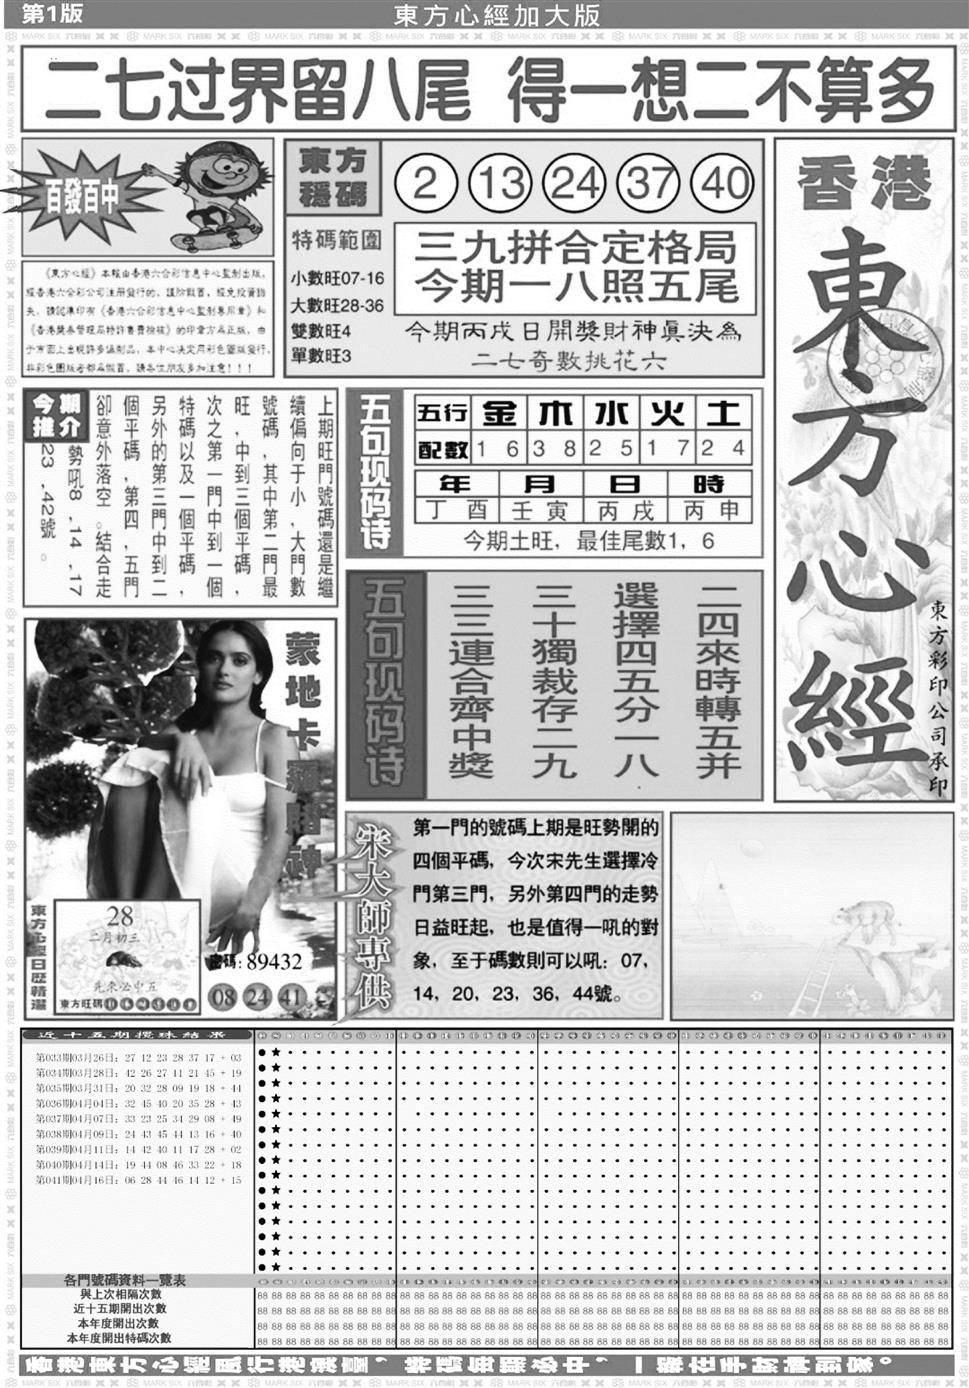 第1版
東方心經加大版
二七过界留八尾 得一想二不算多
百發百中
東方
穩碼
2 13 24 37 40
特碼範圍
小數旺07-16
大數旺28-36
雙數旺4
單數旺3
三九拼合定格局
今期一八照五尾
今期丙戌日開獎財神眞決為
二七奇數挑花六
香港
東方心經
東方彩印公司承印
《東方心經》本報由香港六合彩信息中心監制出版，
經香港六合彩公司注册發行的，謹防假冒，經免投資損
失，請認準印有《香港六合彩信息中心監制專用章》和
《香港獎券管理局特許書費檢核》的印章方爲正版，由
于市面上出現許多偽制品，本中心决定用彩色圖版發行，
非彩色圖版者都爲假冒，請各位朋友多加注意！！！
今期
推介
上期旺門號碼還是繼
續偏向于小，大門數
號碼，其中第二門最
旺，中到三個平碼，
次之第一門中到一個
特碼以及一個平碼，
另外的第三門中到二
個平碼，第四，五門
卻意外落空。結合走
勢吼8,14,17
23,42號。
五句现码诗
五行 金 木 水 火 土
配數 1 6 3 8 2 5 1 7 2 4
年 月 日 時
丁酉 壬寅 丙戌 丙申
今期土旺，最佳尾數1，6
五句现码诗
二四來時轉五并
選擇四五分一八
三十獨裁存二九
三三連合齊中獎
蒙地卡羅賭神
東方心經日歷精選
28
二月初三
先來必中五
東方旺碼
密碼：89432
08 24 41
宋大師專供
第一門的號碼上期是旺勢開的
四個平碼，今次宋先生選擇冷
門第三門，另外第四門的走勢
日益旺起，也是值得一吼的對
象，至于碼數則可以吼：07，
14，20，23，36，44號。
近十五期攪珠結果
第033期03月26日：27 12 23 28 37 17 + 03
第034期03月28日：42 26 27 11 21 45 + 19
第035期03月31日：20 32 28 09 19 18 + 44
第036期04月04日：32 45 40 20 35 28 + 43
第037期04月07日：33 23 25 34 29 08 + 49
第038期04月09日：24 43 45 44 13 16 + 40
第039期04月11日：14 42 40 11 17 28 + 02
第040期04月14日：19 44 08 46 33 22 + 18
第041期04月16日：06 28 44 46 14 12 + 15
各門號碼資料一覽表
與上次相隔次數
近十五期開出次數
本年度開出次數
本年度開出特碼次數
香港東方心經風行港澳臺，特碼每期必中，一報在手財神到家。